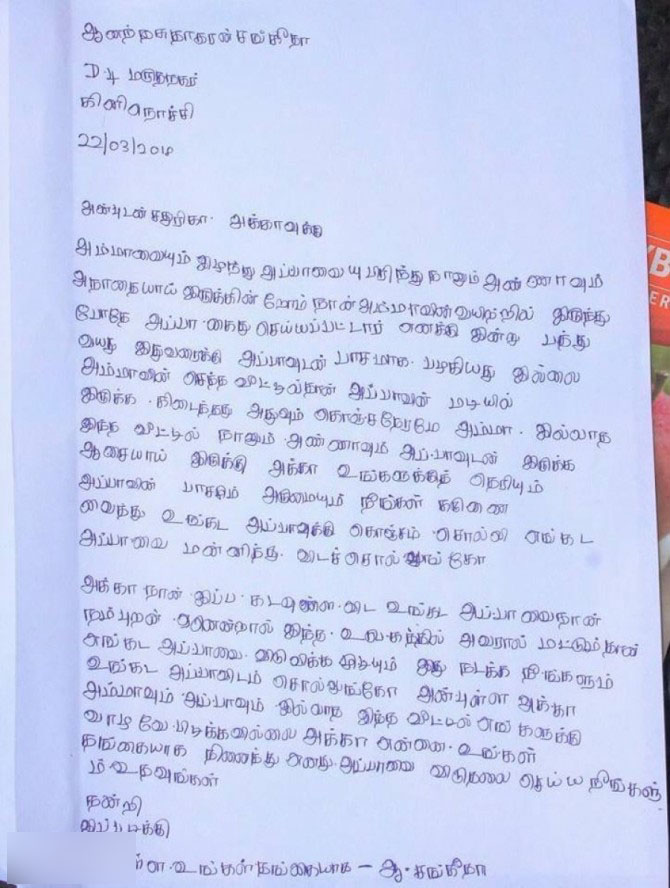 ஆனந்தசுதாகரன் சங்கீதா
D 4 மருதநகர்
கிளிநொச்சி
22/03/2014
அன்புடன் சதுரிகா. அக்காவுக்கு
அம்மாவையும் இழந்து அப்பாவையு பிரிந்து நானும் அண்ணாவும்
அநாதையாய் இருக்கின்றோம் நான் அம்மாவின் வயிற்றில் இருந்து
போதே அப்பா கைது செய்யப்பட்டார் எனக்கு இன்று பத்து
வயது இதுவரைக்கு அப்பாவுடன் பாசமாக. பழகியது இல்லை
அம்மாவின் செத்த வீட்டில்தான் அப்பாவின் மடியில்
இருக்க கிடைத்தது அதுவும் கொஞ்சநேரமே அம்மா. இல்லாத
இந்த வீட்டில் நானும் அண்ணாவும் அப்பாவுடன் இருக்க
ஆசையாய் இருக்கு அக்கா உங்களுக்குத் தெரியும்
அப்பாவின் பாசமும் அருமையும் நீங்கள் கருணை
வைத்து உங்கட அப்பாவுக்கு கொஞ்சம் சொல்லி எங்கட
அப்பாவை மன்னித்து. விடச்சொல்லுங்கோ
அக்கா நான் இப்ப கடவுள்ள விட உங்கட அப்பாவைதான்
நம்புறன் ஏனென்றால் இந்த. உலகத்தில் அவரால் மட்டும்தான்
எங்கட அப்பாவை. விடுவிக்க முடியும் இது நடக்க நீங்களும்
உங்கட அப்பாவிடம் சொல்லுங்கோ அன்புள்ள அக்கா
அம்மாவும் அப்பாவும் இல்லாத இந்த வீட்டில் எங்களுக்கு
வாழவே பிடிக்கவில்லை அக்கா என்னை உங்கள்
தங்கையாக நினைத்து எனது அப்பாவை விடுதலை செய்ய நீங்களு
ம் உதவுங்கள்
நன்றி
இப்படிக்கு
உங்கள் தங்கையாக – ஆ. சங்கீதா